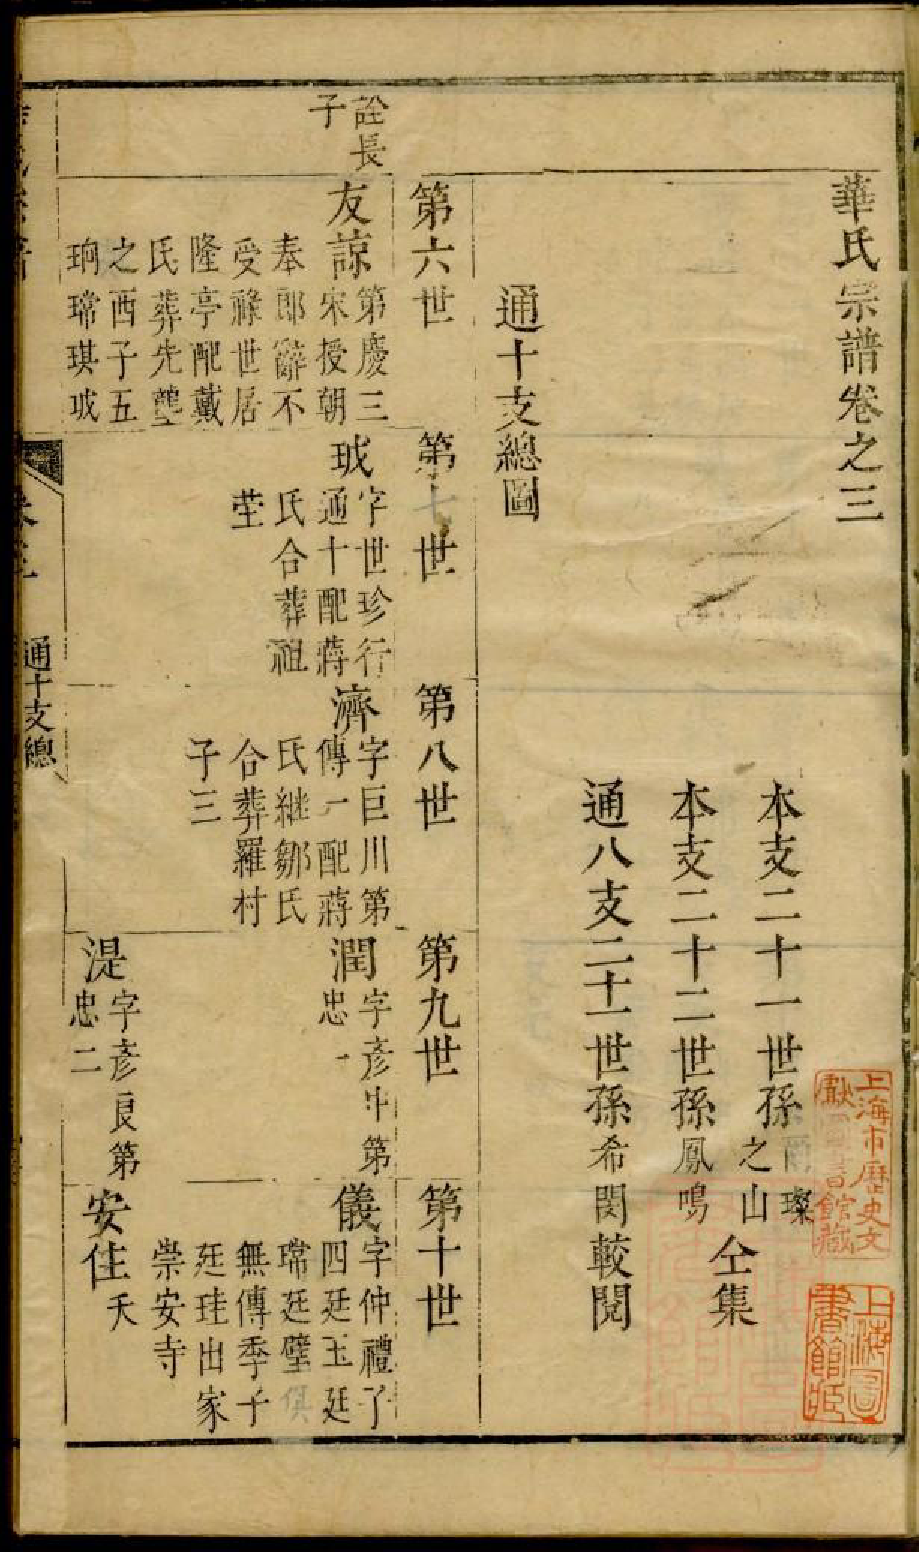 華氏宗譜卷之三
本支二十一世孫
爾璨
之山
本支二十二世孫鳳鳴
仝集
通八支二十一世孫希閔較閱
通十支總圖
第六世
第七世
第八世
第九世
第十世
詮長
子
友諒
第慶三
宋授朝
奉郎辭不
受祿世居
隆亭配戴
氏葬先壟
之酉子五
珦璿琪珬
珬
字世珍行
通十配蔣
氏合葬祖
塋
濟
字巨川第
傳一配蔣
氏継鄒氏
合葬羅村
子三
潤
字彥中第
忠一
儀
字仲禮子
四廷玉廷
璿廷璧俱
無傳季子
廷珪出家
崇安寺
湜
字彥良第
忠二
安住
夭
通十支總
上海市歷史文
獻圖書館藏
上海圖
書館藏